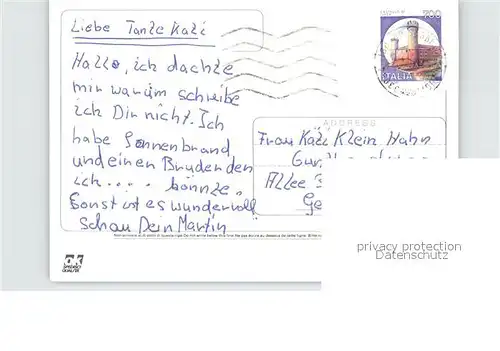 Liebe Tante Käti
Hallo, ich dachte
mir warum schreibe
ich Dir nicht. Ich
habe Sonnenbrand
und einen Bruder den
ich .... könnte.
Sonst ist es wundervoll
Schau Dein Martin
700
ITALIA
ADDRESS
Frau Käti Klein Hahn
Allee
Ge
privacy protection
Datenschutz